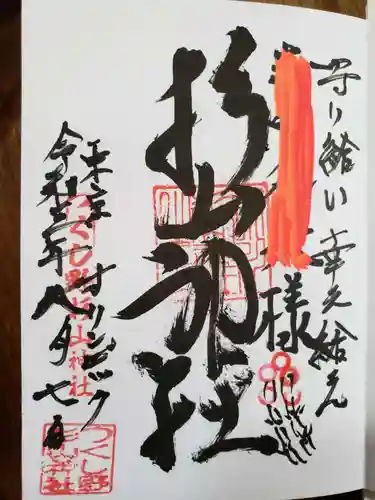 守り給い幸え給え
様
杉山神社
東京オリンピック
令和三年八月七日
つくし野杉山神社
つくし野
杉山神社